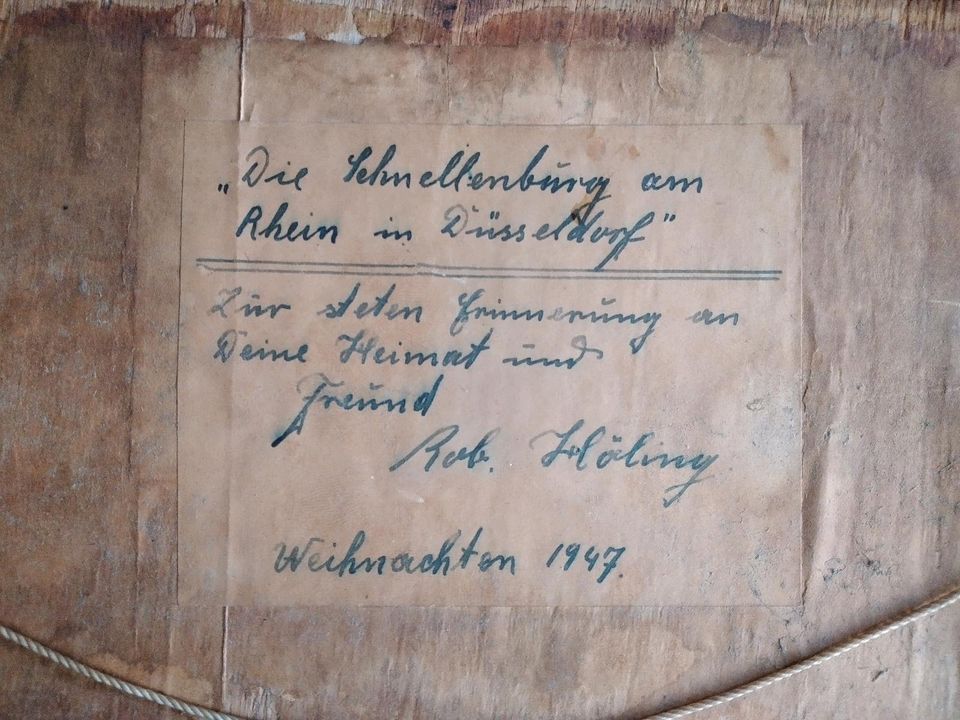 „Die Schnellenburg am
Rhein in Düsseldorf"
Zur steten Erinnerung an
Deine Heimat und
Freund
Rob. Höling
Weihnachten 1947.